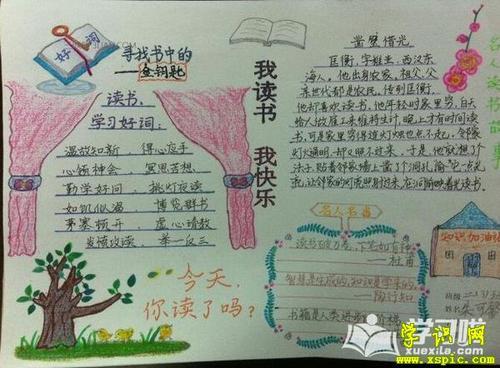 好词
寻找书中的
——金钥匙
读书,
学习好词:
温故知新 得心应手
心领神会 冥思苦想
勤学好问 挑灯夜读
如饥似渴 博览群书
茅塞顿开 虚心请教
发愤攻读 举一反三
今天,
你读了吗?
我读书 我快乐
凿壁借光
匡衡,字稚圭,西汉东
海人,他出身农家,祖父、父
亲世代都是农民,传到匡衡,
他却喜欢读书,他年轻时家里穷,白天
给人做雇工来维持生计,晚上才有时间读
书,可是家里穷得连灯烛也点不起,邻家
灯火通明,却又照不过来,于是他就想个
法子,贴着邻家墙上凿个洞孔,
让邻家的灯光照射过来,
名人名言
读书破万卷,下笔如有神
——杜甫
智慧是生成的,知识是学来的。
——陶行知
书籍是人类进步的阶梯
知识加油站
班级
姓名
学习啦
xuexila.com
学识网
www.xspic.com